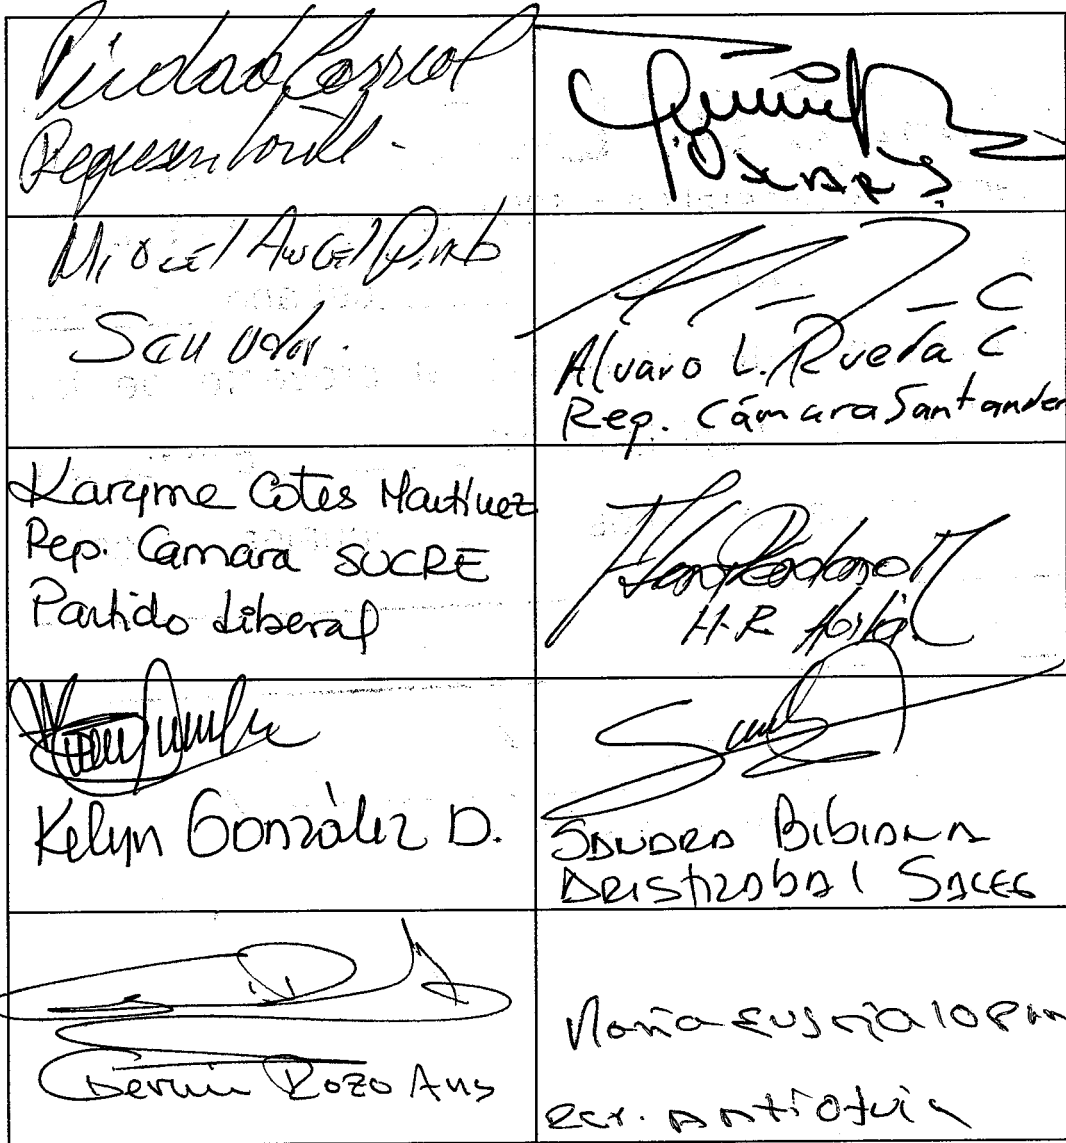 Piedad Correal
Representante.
Miguel Angel Pinto
Senador.
Alvaro L. Rueda C
Rep. Cámara Santander
Karyme Cotes Martínez
Rep. Camara SUCRE
Partido Liberal
H.R.
Kelyn González D.
SANDRA BIBIANA
ARISTIZABAL SALEG
Germán Rozo Anís
María Eugenia Lopera
Rep. Antioquia